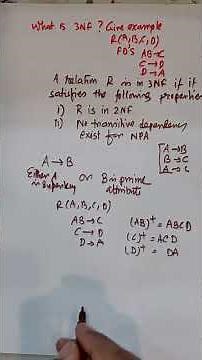 What is 3NF ? Give example
R(A,B,C,D)
FD's AB→C
C→D
D→A
A relation R is in 3NF if it
satisfies the following properties
i) R is in 2NF
ii) No transitive dependency
exist for NPA
A→B
B→C
A→C
A → B
Either A
is superkey
or B is prime
attribute
R(A,B,C,D)
AB→C
C→D
D→A
(AB)+ = ABCD
(C)+ = ACD
(D)+ = DA